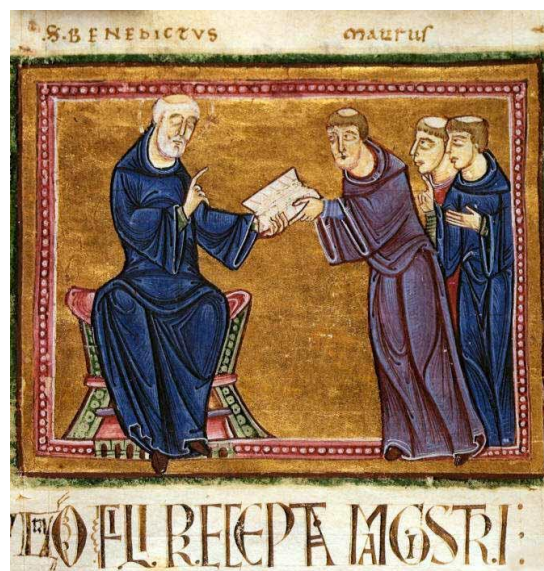 .S. BENEDICTVS maurus
O FILI RECEPTA MAGISTRI: